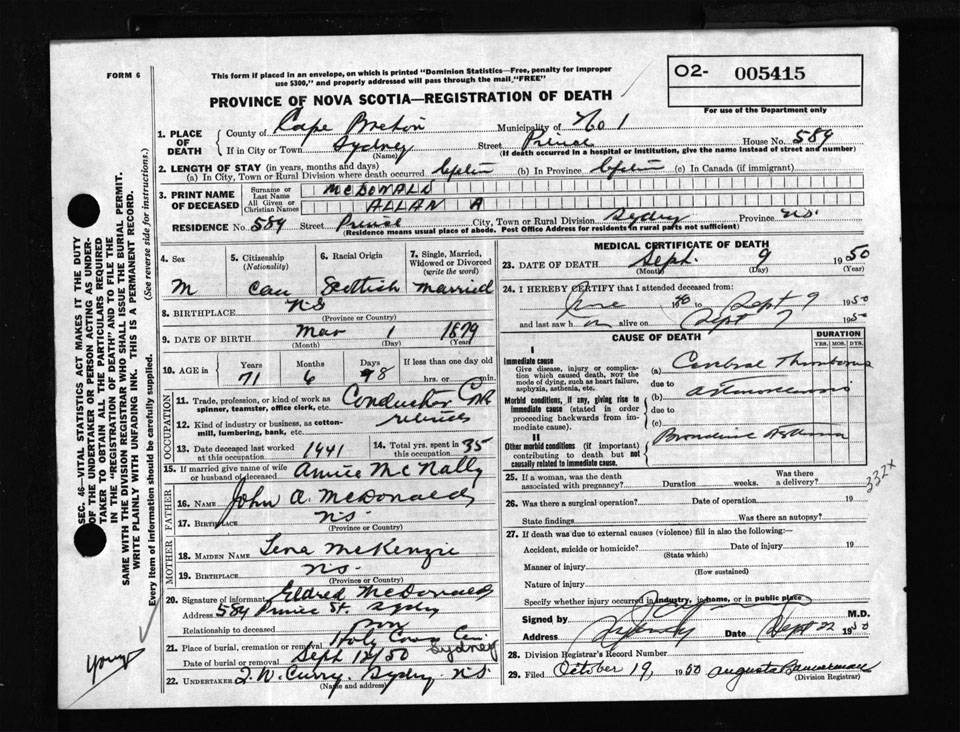 FORM 6
This form if placed in an envelope, on which is printed "Dominion Statistics—Free, penalty for improper
use $300," and properly addressed will pass through the mail "FREE"
O2- 005415
For use of the Department only
PROVINCE OF NOVA SCOTIA—REGISTRATION OF DEATH
1. PLACE OF DEATH
County of Cape Breton Municipality of No 1
If in City or Town Sydney Street Prince House No. 589
(Name) (If death occurred in a hospital or institution, give the name instead of street and number)
2. LENGTH OF STAY (in years, months and days)
(a) In City, Town or Rural Division where death occurred (b) In Province (c) In Canada (if immigrant)
3. PRINT NAME OF DECEASED
Surname or Last Name MCDONALD
All Given or Christian Names ALLAN A
RESIDENCE No. 589 Street Prince City, Town or Rural Division Sydney Province N.S.
(Residence means usual place of abode. Post Office Address for residents in rural parts not sufficient)
4. Sex M
5. Citizenship (Nationality) Can
6. Racial Origin Scottish
7. Single, Married, Widowed or Divorced (write the word) Married
8. BIRTHPLACE N S
(Province or Country)
9. DATE OF BIRTH Mar 1 1879
(Month) (Day) (Year)
10. AGE in Years Months Days If less than one day old
71 6 8 hrs. or min.
OCCUPATION
11. Trade, profession, or kind of work as
spinner, teamster, office clerk, etc. Conductor CNR
12. Kind of industry or business, as cotton-
mill, lumbering, bank, etc.
13. Date deceased last worked at this occupation 1941
14. Total yrs. spent in this occupation 35
15. If married give name of wife
or husband of deceased Annie McNally
FATHER
16. NAME John A. McDonald
17. BIRTHPLACE N.S.
(Province or Country)
MOTHER
18. MAIDEN NAME Lena McKenzie
19. BIRTHPLACE N.S.
(Province or Country)
20. Signature of informant Eldred McDonald
Address 589 Prince St. Sydney
Relationship to deceased Son
21. Place of burial, cremation or removal Holy Cross Cem. Sydney
Date of burial or removal Sept 12/50
22. UNDERTAKER T. W. Curry. Sydney N.S
(Name and address)
MEDICAL CERTIFICATE OF DEATH
23. DATE OF DEATH Sept. 9 1950
(Month) (Day) (Year)
24. I HEREBY CERTIFY that I attended deceased from:
June to Sept 9 1950
and last saw h im alive on Sept 7 1950
CAUSE OF DEATH
DURATION
YRS. MOS. DYS.
I
Immediate cause
Give disease, injury or complica-
tion which caused death, NOT the
mode of dying, such as heart failure,
asphyxia, asthenia, etc.
(a) Cerebral Thrombosis
due to
Morbid conditions, if any, giving rise to
immediate cause (stated in order
proceeding backwards from im-
mediate cause).
(b)
due to
(c)
II
Other morbid conditions (if important)
contributing to death but not
causally related to immediate cause.
Bronchial Asthma
25. If a woman, was the death
associated with pregnancy? Duration weeks. Was there a delivery?
332X
26. Was there a surgical operation? Date of operation 19
State findings Was there an autopsy?
27. If death was due to external causes (violence) fill in also the following:—
Accident, suicide or homicide? Date of injury 19
(State which)
Manner of injury
(How sustained)
Nature of injury
Specify whether injury occurred in industry, in home, or in public place
Signed by M.D.
Address Sydney Date Sept 22 1950
28. Division Registrar's Record Number
29. Filed October 19, 1950 Augusta Bannerman
(Division Registrar)
SEC. 46—VITAL STATISTICS ACT MAKES IT THE DUTY
OF THE UNDERTAKER OR PERSON ACTING AS UNDER-
TAKER TO OBTAIN ALL THE PARTICULARS REQUIRED
IN THE "REGISTRATION OF DEATH" AND TO FILE THE
SAME WITH THE DIVISION REGISTRAR WHO SHALL ISSUE THE BURIAL PERMIT.
WRITE PLAINLY WITH UNFADING INK. THIS IS A PERMANENT RECORD.
Every item of information should be carefully supplied. (See reverse side for instructions.)